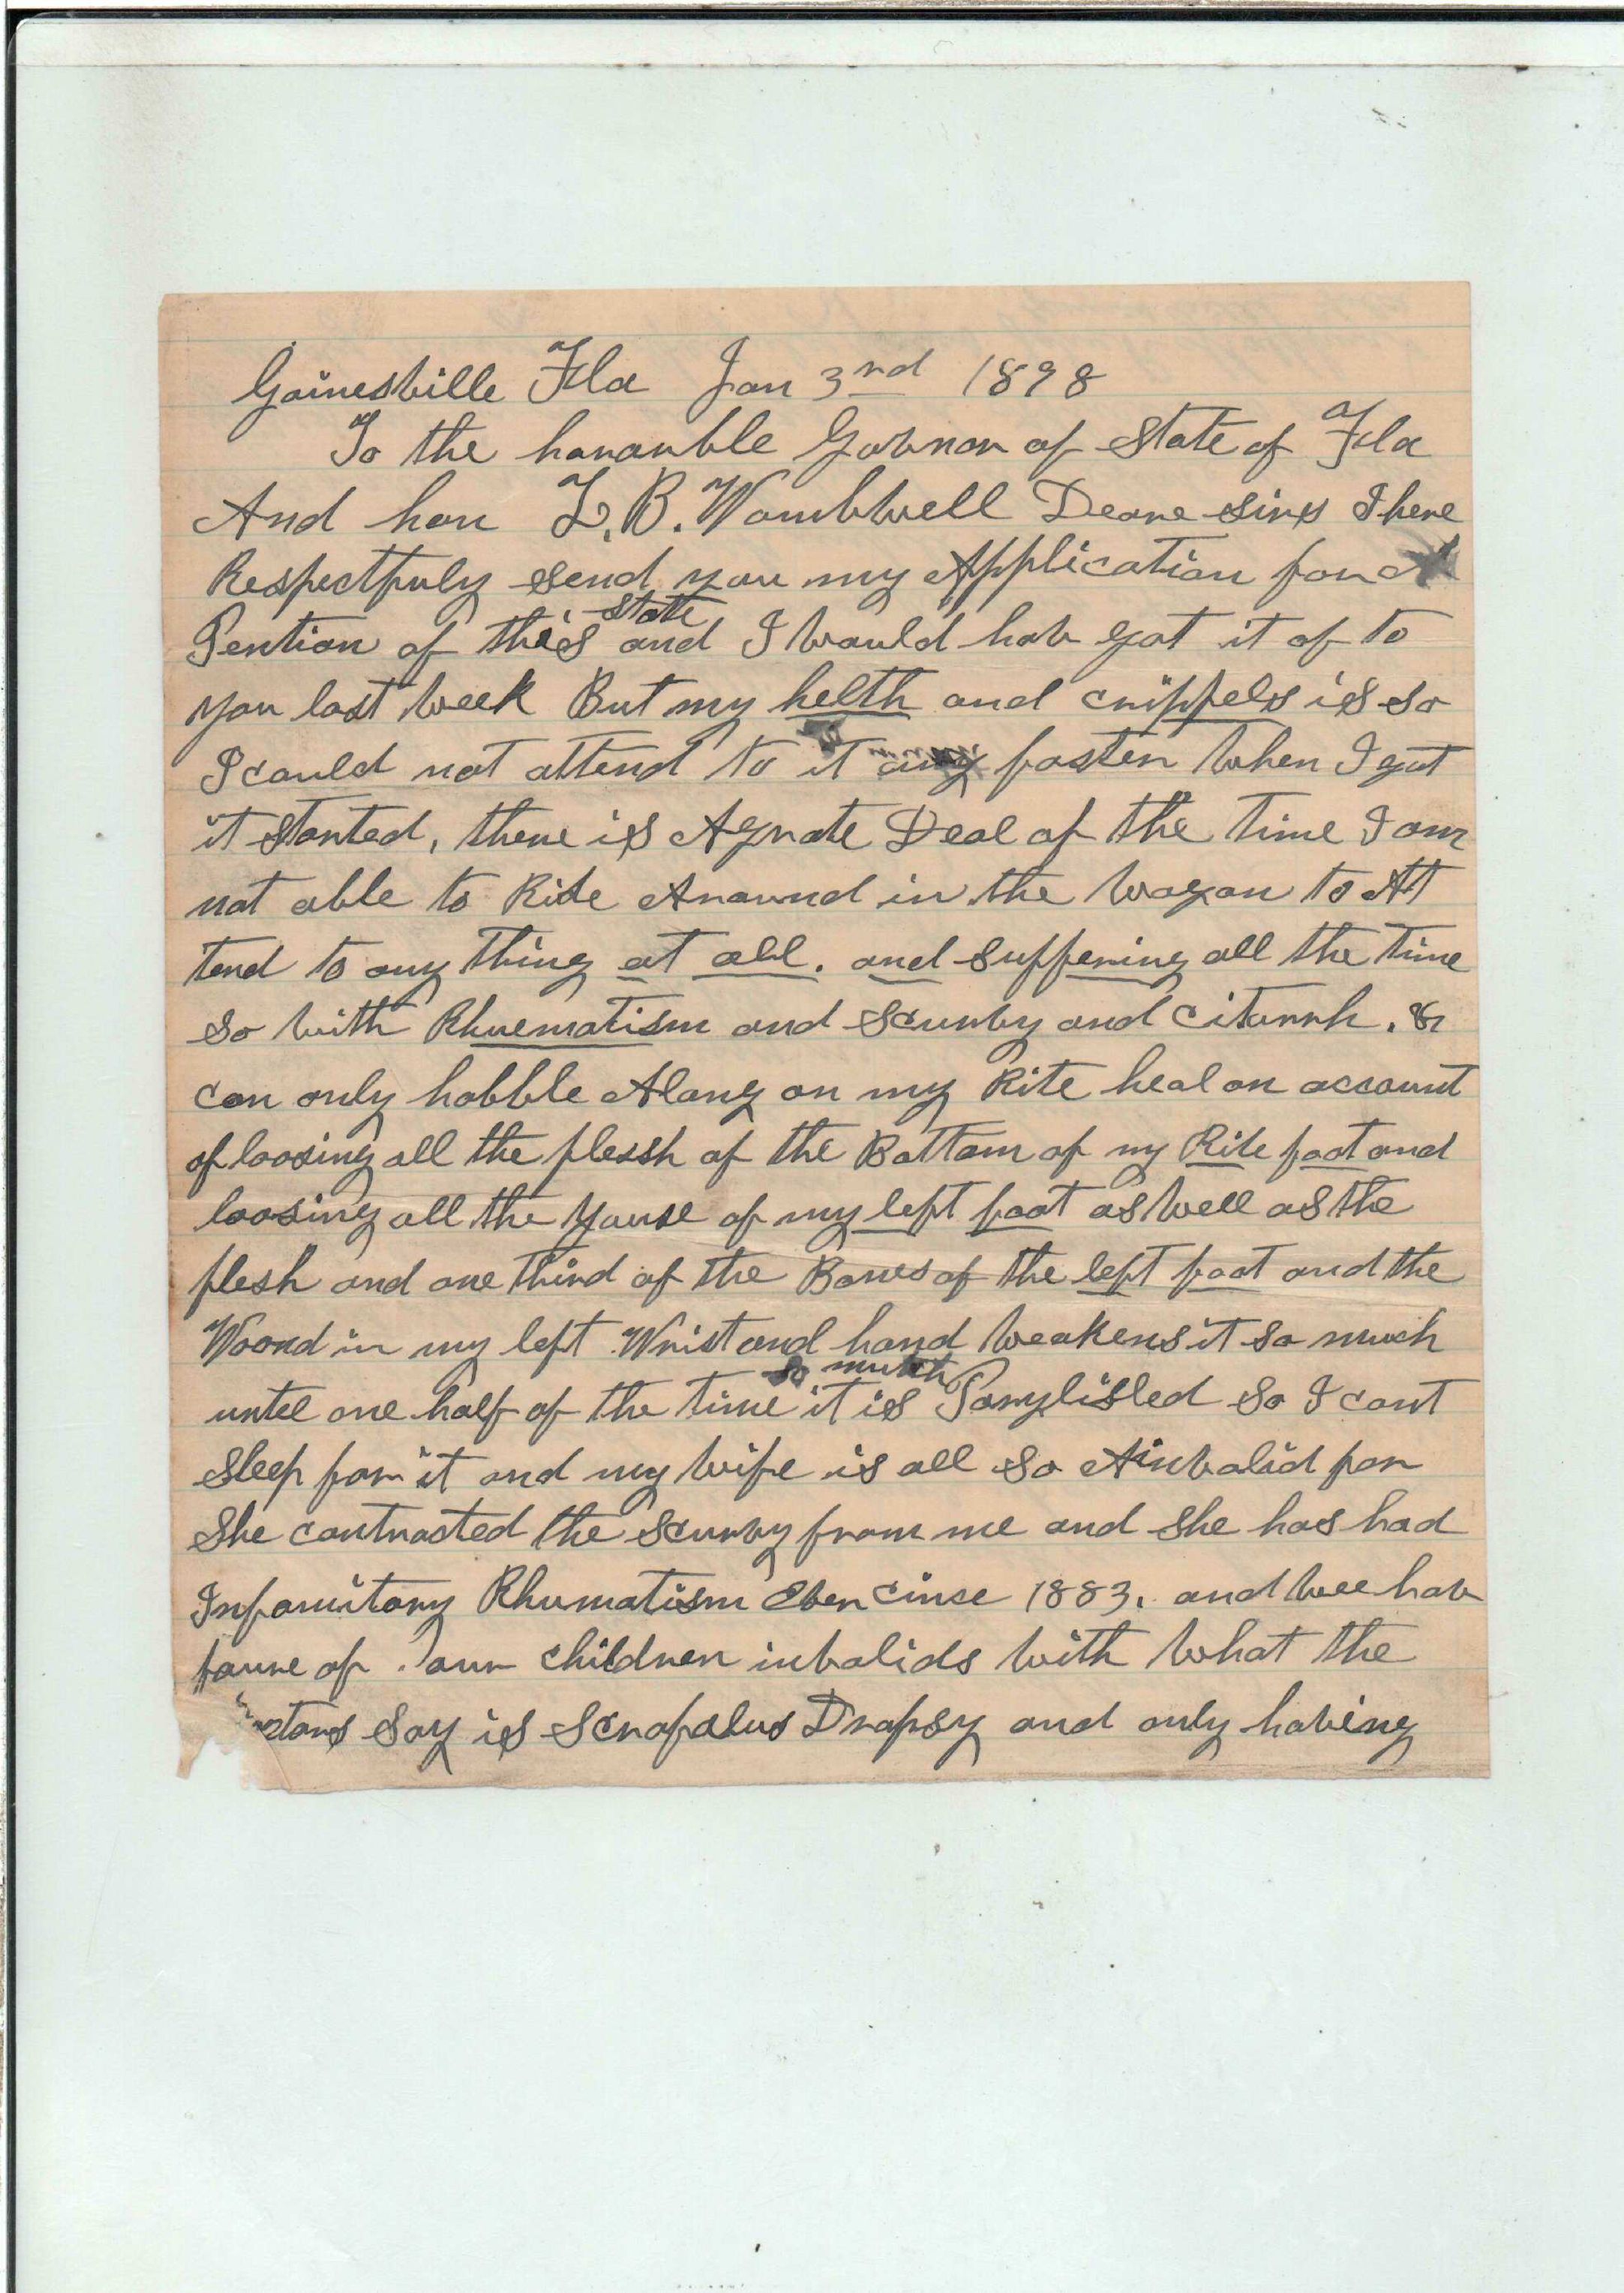 Gainesville Fla Jan 3rd 1898
To the honarble Govnor of State of Fla
And hon L. B. Wombwell Deare sirs I here
Respectfuly send you my Application for A
Pention of this state and I would hav got it of to
you last week But my helth and crippels is so
I could not attend to it any faster when I got
it started, there is A grate Deal of the time I am
not able to Ride Around in the wagon to At
tend to any thing at all. and suffering all the time
so with Rhuematism and scurvy and citarrh. &
can only hobble Along on my Rite heal on account
of loosing all the flessh of the Bottom of my Rite foot and
loosing all the youse of my left foot as well as the
flesh and one third of the Bones of the left foot and the
Woond in my left Wrist and hand weakens it so much
until one half of the time it is so mutch Parylisled so I cant
sleep for it and my wife is all so A invalid for
She contracted the scurvy from me and she has had
Infamitory Rhumatism Ever cince 1883. and wee hav
foure of our children invalids with what the
ctors say is Scrofalus Dropsy and only having